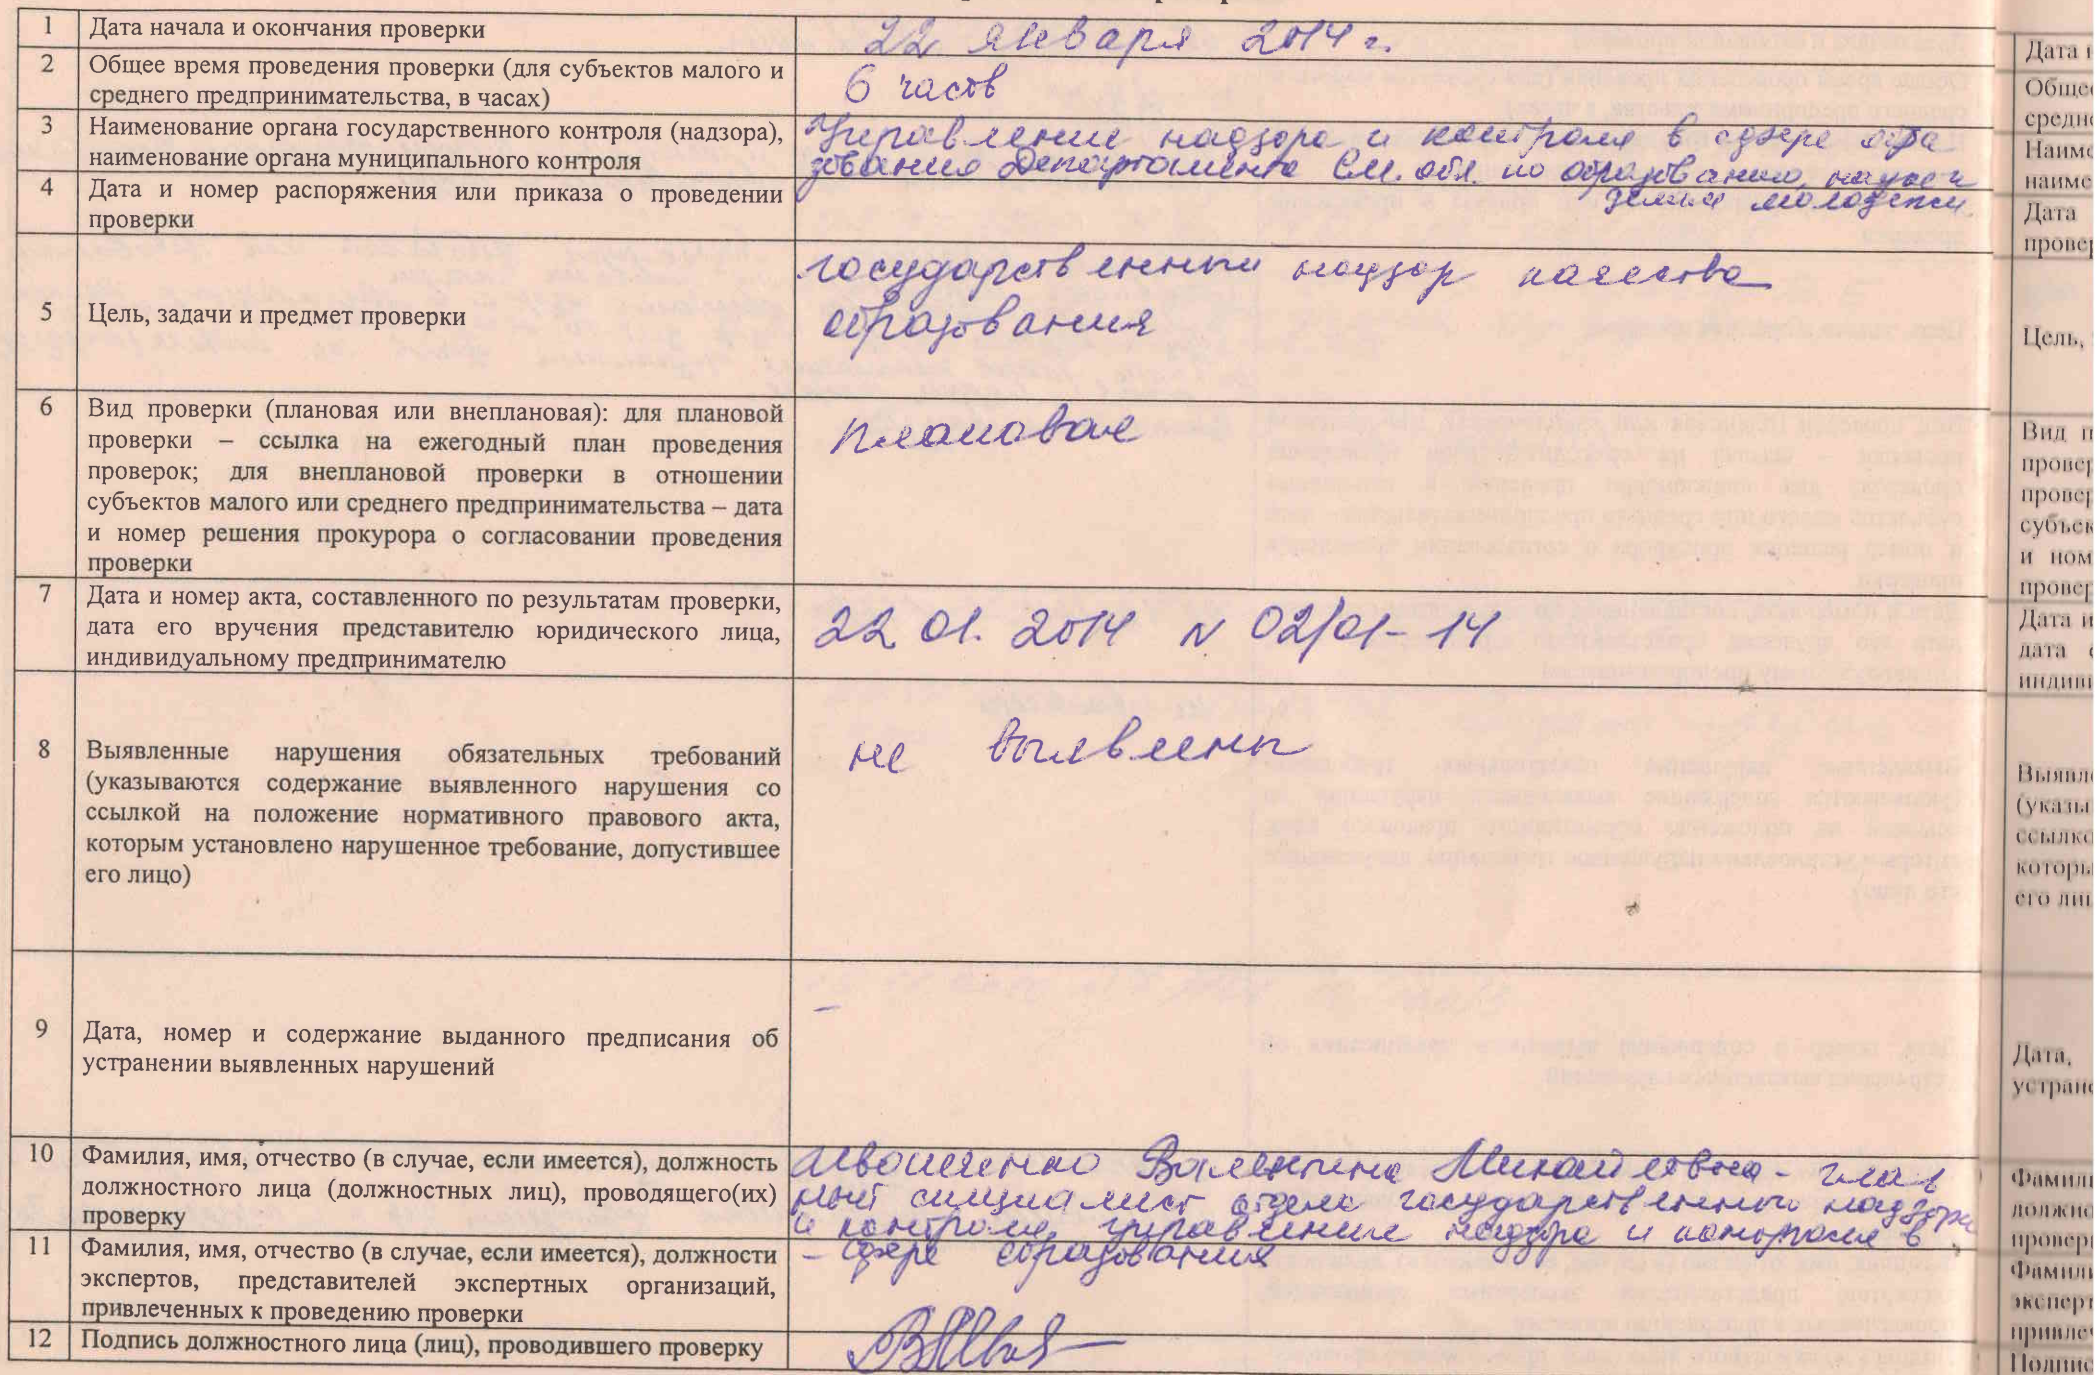 1 Дата начала и окончания проверки 22 января 2014 г.
2 Общее время проведения проверки (для субъектов малого и
среднего предпринимательства, в часах) 6 часов
3 Наименование органа государственного контроля (надзора),
наименование органа муниципального контроля
Управление надзора и контроля в сфере обра
зования Департамента См. обл. по образованию, науке и
делам молодежи
4 Дата и номер распоряжения или приказа о проведении
проверки
5 Цель, задачи и предмет проверки
государственный надзор качества
образования
6 Вид проверки (плановая или внеплановая): для плановой
проверки – ссылка на ежегодный план проведения
проверок; для внеплановой проверки в отношении
субъектов малого или среднего предпринимательства – дата
и номер решения прокурора о согласовании проведения
проверки
плановая
7 Дата и номер акта, составленного по результатам проверки,
дата его вручения представителю юридического лица,
индивидуальному предпринимателю
22 01. 2014 N 02/01-14
8 Выявленные нарушения обязательных требований
(указываются содержание выявленного нарушения со
ссылкой на положение нормативного правового акта,
которым установлено нарушенное требование, допустившее
его лицо)
не выявлены
9 Дата, номер и содержание выданного предписания об
устранении выявленных нарушений
-
10 Фамилия, имя, отчество (в случае, если имеется), должность
должностного лица (должностных лиц), проводящего(их)
проверку
Валентина Михайловна - глав
ный специалист отдела государственного надзора
и контроля управления надзора и контроля в
сфере образования
11 Фамилия, имя, отчество (в случае, если имеется), должности
экспертов, представителей экспертных организаций,
привлеченных к проведению проверки
-
12 Подпись должностного лица (лиц), проводившего проверку
Дата
Общее
средне
Наиме
наиме
Дата
провер
Цель,
Вид п
провер
провер
субъек
и ном
провер
Дата и
дата
индиви
Выявле
(указы
ссылко
которы
его ли
Дата,
устране
Фамили
должно
провер
Фамили
эксперт
привлеч
Подпис